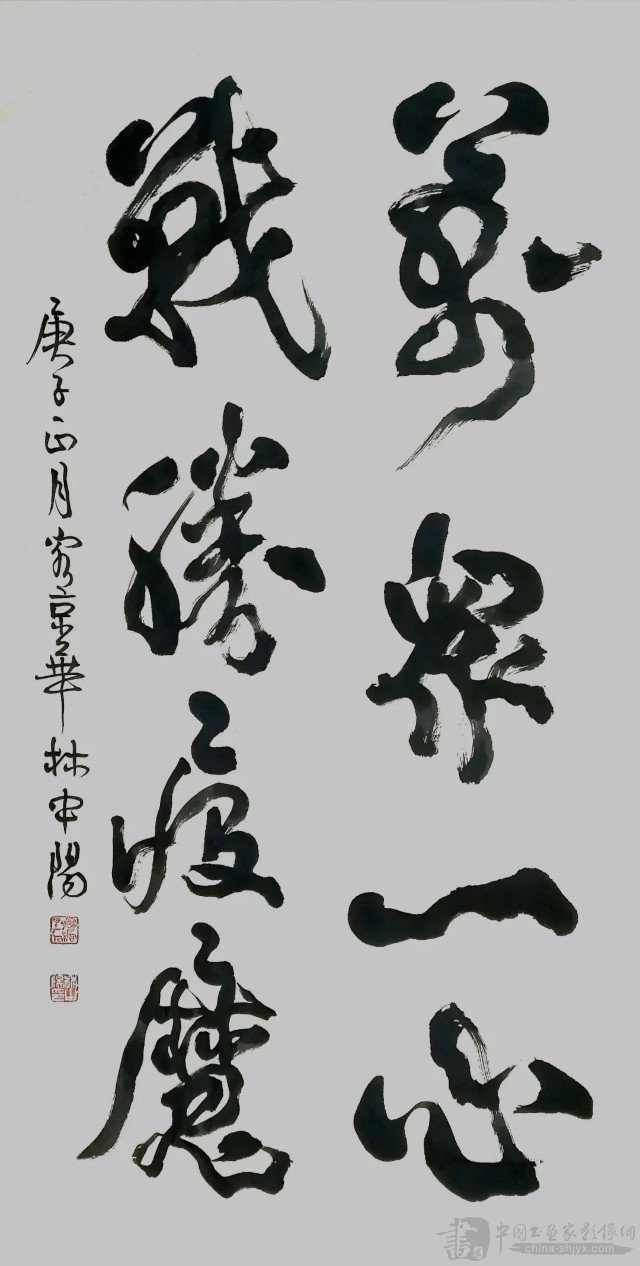 萬眾一心
戰勝疫魔
庚子正月客京華林中陽
中國书画家影像網
china-shjyx.com